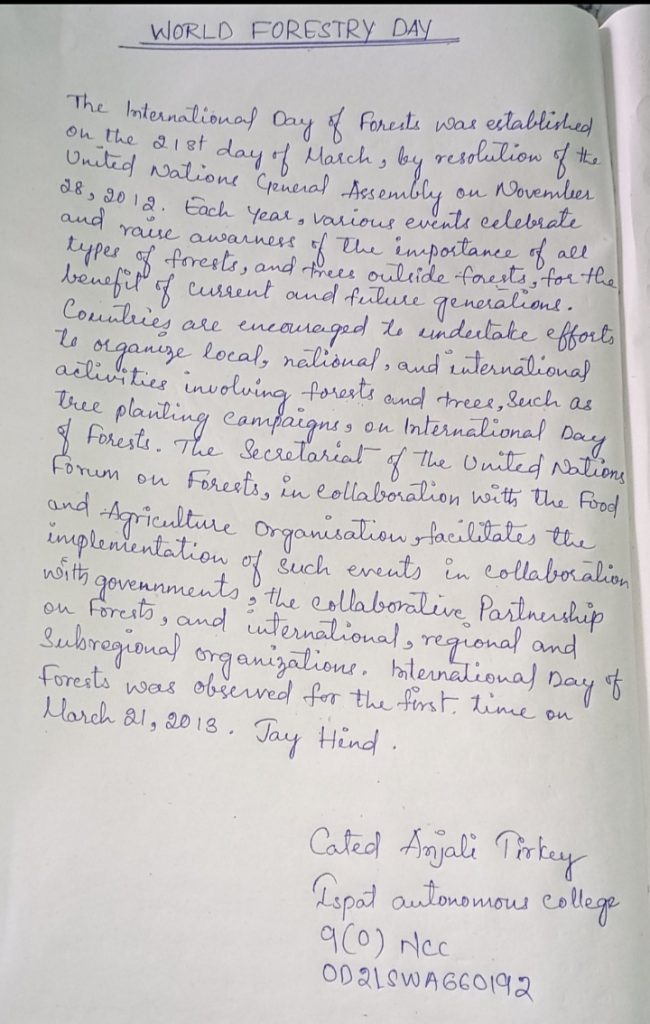 WORLD FORESTRY DAY
The International Day of Forests was established
on the 21st day of March, by resolution of the
United Nations General Assembly on November
28, 2012. Each Year, various events celebrate
and raise awarness of the importance of all
types of forests, and trees outside forests, for the
benefit of current and future generations.
Countries are encouraged to undertake efforts
to organize local, national, and international
activities involving forests and trees, Such as
tree planting campaigns, on International Day
of Forests. The Secretariat of the United Nations
Forum on Forests, in collaboration with the Food
and Agriculture Organisation, facilitates the
implementation of such events in collaboration
with governments, the collaborative Partnership
on Forests, and international, regional and
Subregional organizations. International Day of
Forests was observed for the first. time on
March 21, 2013. Jay Hind.
Cated Anjali Tirkey
Ispat autonomous college
9(O) Ncc
OD21SWA660192